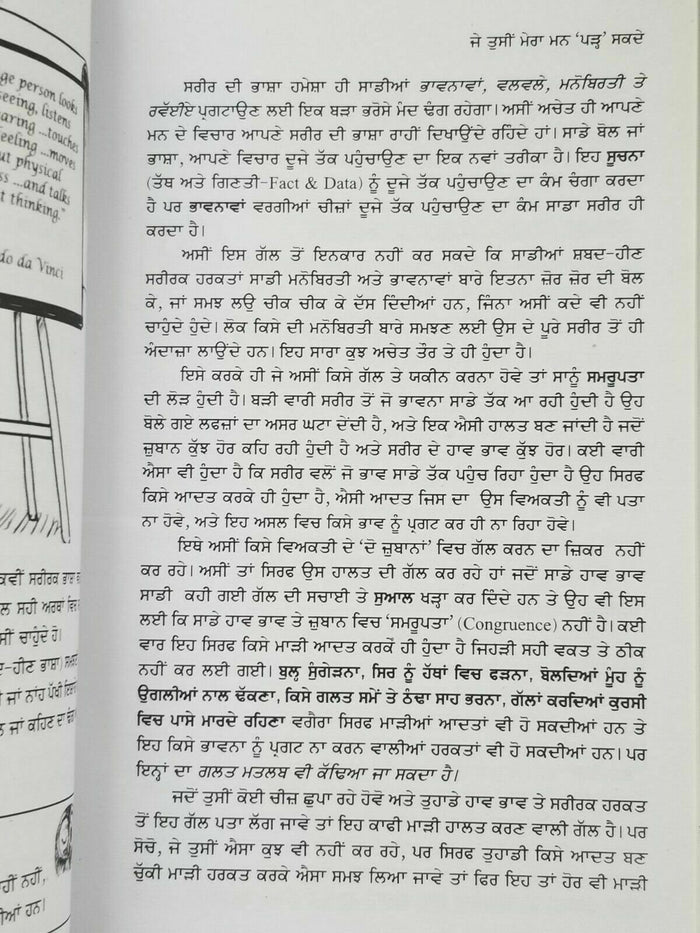 ge person looks
seeing, listens
aring ...touches
eeling ...moves
ut physical
ss ...and talks
t thinking."
do da Vinci
ਕਵੀਂ ਸਰੀਰਕ ਭਾਸ਼ਾ
ਲ ਸਹੀ ਅਰਥਾਂ ਵਿਚ
ਸੀਂ ਚਾਹੁੰਦੇ ਹੋ।
ਦ-ਹੀਣ ਭਾਸ਼ਾ)
ਜਾਂ ਨਾਂਹ ਪੱਖੀ
ਜਾਂ ਕਹਿਣ ਦਾ ਢੰਗ
ਹੀਂ ਨਹੀਂ,
ਆਂ ਹਨ।
ਜੇ ਤੁਸੀਂ ਮੇਰਾ ਮਨ ‘ਪੜ੍ਹ’ ਸਕਦੇ
ਸਰੀਰ ਦੀ ਭਾਸ਼ਾ ਹਮੇਸ਼ਾ ਹੀ ਸਾਡੀਆਂ ਭਾਵਨਾਵਾਂ, ਵਲਵਲੇ, ਮਨੋਬਿਰਤੀ ਤੇ
ਰਵੱਈਏ ਪ੍ਰਗਟਾਉਣ ਲਈ ਇਕ ਬੜਾ ਭਰੋਸੇ ਮੰਦ ਢੰਗ ਰਹੇਗਾ। ਅਸੀਂ ਅਚੇਤ ਹੀ ਆਪਣੇ
ਮਨ ਦੇ ਵਿਚਾਰ ਆਪਣੇ ਸਰੀਰ ਦੀ ਭਾਸ਼ਾ ਰਾਹੀਂ ਦਿਖਾਉਂਦੇ ਰਹਿੰਦੇ ਹਾਂ। ਸਾਡੇ ਬੋਲ ਜਾਂ
ਭਾਸ਼ਾ, ਆਪਣੇ ਵਿਚਾਰ ਦੂਜੇ ਤੱਕ ਪਹੁੰਚਾਉਣ ਦਾ ਇਕ ਨਵਾਂ ਤਰੀਕਾ ਹੈ। ਇਹ ਸੂਚਨਾ
(ਤੱਥ ਅਤੇ ਗਿਣਤੀ-Fact & Data) ਨੂੰ ਦੂਜੇ ਤੱਕ ਪਹੁੰਚਾਉਣ ਦਾ ਕੰਮ ਚੰਗਾ ਕਰਦਾ
ਹੈ ਪਰ ਭਾਵਨਾਵਾਂ ਵਰਗੀਆਂ ਚੀਜ਼ਾਂ ਦੂਜੇ ਤੱਕ ਪਹੁੰਚਾਉਣ ਦਾ ਕੰਮ ਸਾਡਾ ਸਰੀਰ ਹੀ
ਕਰਦਾ ਹੈ।
ਅਸੀਂ ਇਸ ਗੱਲ ਤੋਂ ਇਨਕਾਰ ਨਹੀਂ ਕਰ ਸਕਦੇ ਕਿ ਸਾਡੀਆਂ ਸ਼ਬਦ-ਹੀਣ
ਸਰੀਰਕ ਹਰਕਤਾਂ ਸਾਡੀ ਮਨੋਬਿਰਤੀ ਅਤੇ ਭਾਵਨਾਵਾਂ ਬਾਰੇ ਇਤਨਾ ਜ਼ੋਰ ਜ਼ੋਰ ਦੀ ਬੋਲ
ਕੇ, ਜਾਂ ਸਮਝ ਲਉ ਚੀਕ ਚੀਕ ਕੇ ਦੱਸ ਦਿੰਦੀਆਂ ਹਨ, ਜਿੰਨਾ ਅਸੀਂ ਕਦੇ ਵੀ ਨਹੀਂ
ਚਾਹੁੰਦੇ ਹੁੰਦੇ। ਲੋਕ ਕਿਸੇ ਦੀ ਮਨੋਬਿਰਤੀ ਬਾਰੇ ਸਮਝਣ ਲਈ ਉਸ ਦੇ ਪੂਰੇ ਸਰੀਰ ਤੋਂ ਹੀ
ਅੰਦਾਜ਼ਾ ਲਾਉਂਦੇ ਹਨ। ਇਹ ਸਾਰਾ ਕੁਝ ਅਚੇਤ ਤੌਰ ਤੇ ਹੀ ਹੁੰਦਾ ਹੈ।
ਇਸੇ ਕਰਕੇ ਹੀ ਜੇ ਅਸੀਂ ਕਿਸੇ ਗੱਲ ਤੇ ਯਕੀਨ ਕਰਨਾ ਹੋਵੇ ਤਾਂ ਸਾਨੂੰ ਸਮਰੂਪਤਾ
ਦੀ ਲੋੜ ਹੁੰਦੀ ਹੈ। ਬੜੀ ਵਾਰੀ ਸਰੀਰ ਤੋਂ ਜੋ ਭਾਵਨਾ ਸਾਡੇ ਤੱਕ ਆ ਰਹੀ ਹੁੰਦੀ ਹੈ ਉਹ
ਬੋਲੇ ਗਏ ਲਫਜ਼ਾਂ ਦਾ ਅਸਰ ਘਟਾ ਦੇਂਦੀ ਹੈ, ਅਤੇ ਇਕ ਐਸੀ ਹਾਲਤ ਬਣ ਜਾਂਦੀ ਹੈ ਜਦੋਂ
ਜ਼ੁਬਾਨ ਕੁੱਝ ਹੋਰ ਕਹਿ ਰਹੀ ਹੁੰਦੀ ਹੈ ਅਤੇ ਸਰੀਰ ਦੇ ਹਾਵ ਭਾਵ ਕੁੱਝ ਹੋਰ। ਕਈ ਵਾਰੀ
ਐਸਾ ਵੀ ਹੁੰਦਾ ਹੈ ਕਿ ਸਰੀਰ ਵਲੋਂ ਜੋ ਭਾਵ ਸਾਡੇ ਤੱਕ ਪਹੁੰਚ ਰਿਹਾ ਹੁੰਦਾ ਹੈ ਉਹ ਸਿਰਫ
ਕਿਸੇ ਆਦਤ ਕਰਕੇ ਹੀ ਹੁੰਦਾ ਹੈ, ਐਸੀ ਆਦਤ ਜਿਸ ਦਾ ਉਸ ਵਿਅਕਤੀ ਨੂੰ ਵੀ ਪਤਾ
ਨਾ ਹੋਵੇ, ਅਤੇ ਇਹ ਅਸਲ ਵਿਚ ਕਿਸੇ ਭਾਵ ਨੂੰ ਪ੍ਰਗਟ ਕਰ ਹੀ ਨਾ ਰਿਹਾ ਹੋਵੇ।
ਇਥੇ ਅਸੀਂ ਕਿਸੇ ਵਿਅਕਤੀ ਦੇ ‘ਦੋ ਜ਼ੁਬਾਨਾਂ’ ਵਿਚ ਗੱਲ ਕਰਨ ਦਾ ਜ਼ਿਕਰ ਨਹੀਂ
ਕਰ ਰਹੇ। ਅਸੀਂ ਤਾਂ ਸਿਰਫ ਉਸ ਹਾਲਤ ਦੀ ਗੱਲ ਕਰ ਰਹੇ ਹਾਂ ਜਦੋਂ ਸਾਡੇ ਹਾਵ ਭਾਵ
ਸਾਡੀ ਕਹੀ ਗਈ ਗੱਲ ਦੀ ਸਚਾਈ ਤੇ ਸੁਆਲ ਖੜ੍ਹਾ ਕਰ ਦਿੰਦੇ ਹਨ ਤੇ ਉਹ ਵੀ ਇਸ
ਲਈ ਕਿ ਸਾਡੇ ਹਾਵ ਭਾਵ ਤੇ ਜ਼ੁਬਾਨ ਵਿਚ ‘ਸਮਰੂਪਤਾ’ (Congruence) ਨਹੀਂ ਹੈ। ਕਈ
ਵਾਰ ਇਹ ਸਿਰਫ ਕਿਸੇ ਮਾੜੀ ਆਦਤ ਕਰਕੇ ਹੀ ਹੁੰਦਾ ਹੈ ਜਿਹੜੀ ਸਹੀ ਵਕਤ ਤੇ ਠੀਕ
ਨਹੀਂ ਕਰ ਲਈ ਗਈ। ਬੁਲ੍ਹ ਸੁੰਗੇੜਨਾ, ਸਿਰ ਨੂੰ ਹੱਥਾਂ ਵਿਚ ਫੜਨਾ, ਬੋਲਦਿਆਂ ਮੂੰਹ ਨੂੰ
ਉਗਲੀਆਂ ਨਾਲ ਢੱਕਣਾ, ਕਿਸੇ ਗਲਤ ਸਮੇਂ ਤੇ ਠੰਢਾ ਸਾਹ ਭਰਨਾ, ਗੱਲਾਂ ਕਰਦਿਆਂ ਕੁਰਸੀ
ਵਿਚ ਪਾਸੇ ਮਾਰਦੇ ਰਹਿਣਾ ਵਗੈਰਾ ਸਿਰਫ ਮਾੜੀਆਂ ਆਦਤਾਂ ਵੀ ਹੋ ਸਕਦੀਆਂ ਹਨ ਤੇ
ਇਹ ਕਿਸੇ ਭਾਵਨਾ ਨੂੰ ਪ੍ਰਗਟ ਨਾ ਕਰਨ ਵਾਲੀਆਂ ਹਰਕਤਾਂ ਵੀ ਹੋ ਸਕਦੀਆਂ ਹਨ। ਪਰ
ਇਨ੍ਹਾਂ ਦਾ ਗਲਤ ਮਤਲਬ ਵੀ ਕੱਢਿਆ ਜਾ ਸਕਦਾ ਹੈ।
ਜਦੋਂ ਤੁਸੀਂ ਕੋਈ ਚੀਜ਼ ਛੁਪਾ ਰਹੇ ਹੋਵੋ ਅਤੇ ਤੁਹਾਡੇ ਹਾਵ ਭਾਵ ਤੇ ਸਰੀਰਕ ਹਰਕਤ
ਤੋਂ ਇਹ ਗੱਲ ਪਤਾ ਲੱਗ ਜਾਵੇ ਤਾਂ ਇਹ ਕਾਫੀ ਮਾੜੀ ਹਾਲਤ ਕਰਣ ਵਾਲੀ ਗੱਲ ਹੈ। ਪਰ
ਸੋਚੋ, ਜੇ ਤੁਸੀਂ ਐਸਾ ਕੁਝ ਵੀ ਨਹੀਂ ਕਰ ਰਹੇ, ਪਰ ਸਿਰਫ ਤੁਹਾਡੀ ਕਿਸੇ ਆਦਤ ਬਣ
ਚੁੱਕੀ ਮਾੜੀ ਹਰਕਤ ਕਰਕੇ ਐਸਾ ਸਮਝ ਲਿਆ ਜਾਵੇ ਤਾਂ ਫਿਰ ਇਹ ਤਾਂ ਹੋਰ ਵੀ ਮਾੜੀ